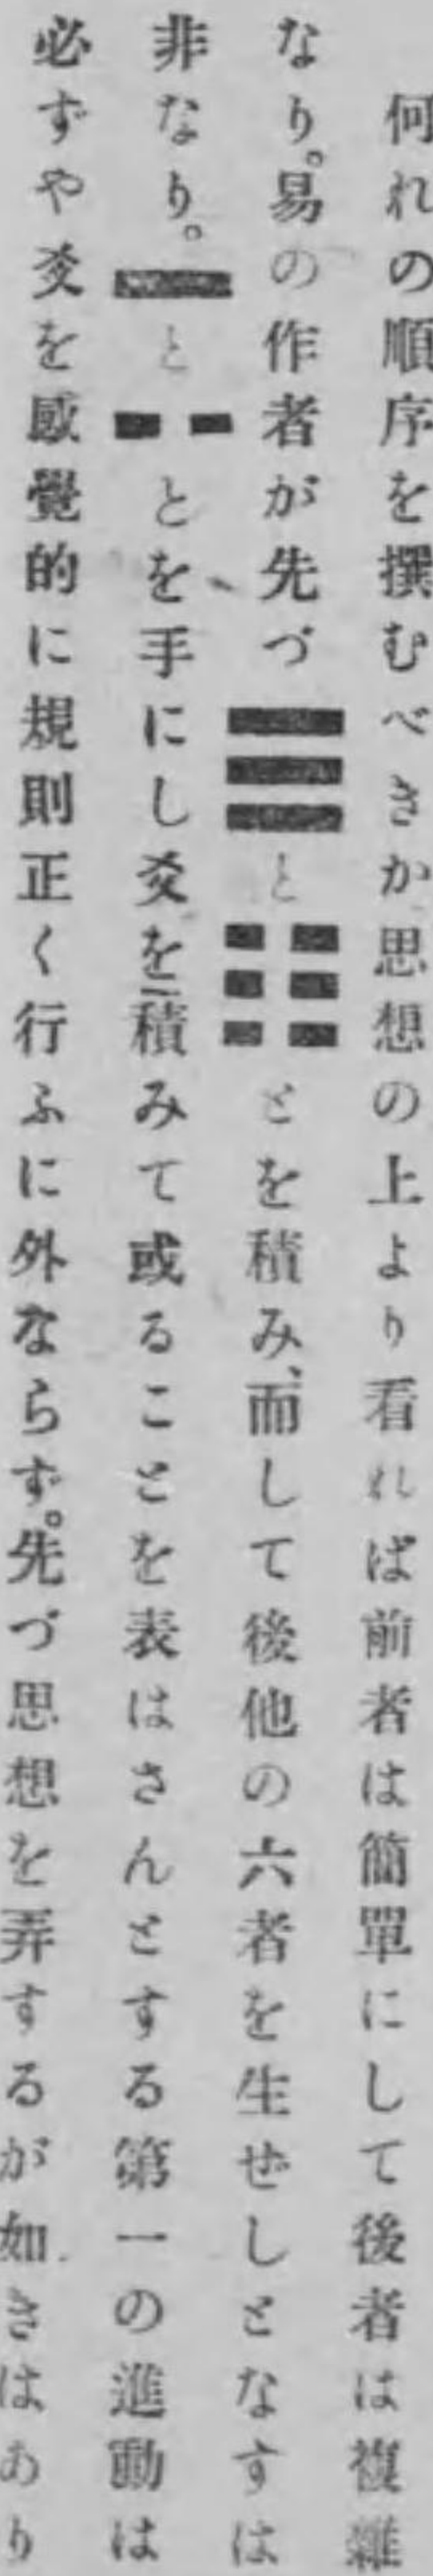 何れの順序を撰むべきか思想の上より看れば前者は簡單にして後者は複雜
なり。易の作者が先づ☰と☷とを積み、而して後他の六者を生ぜしとなすは
非なり。⚊と⚋とを手にし爻を積みて或ることを表はさんとする第一の進動は
必ずや爻を感覺的に規則正く行ふに外ならず。先づ思想を弄するが如きはあり